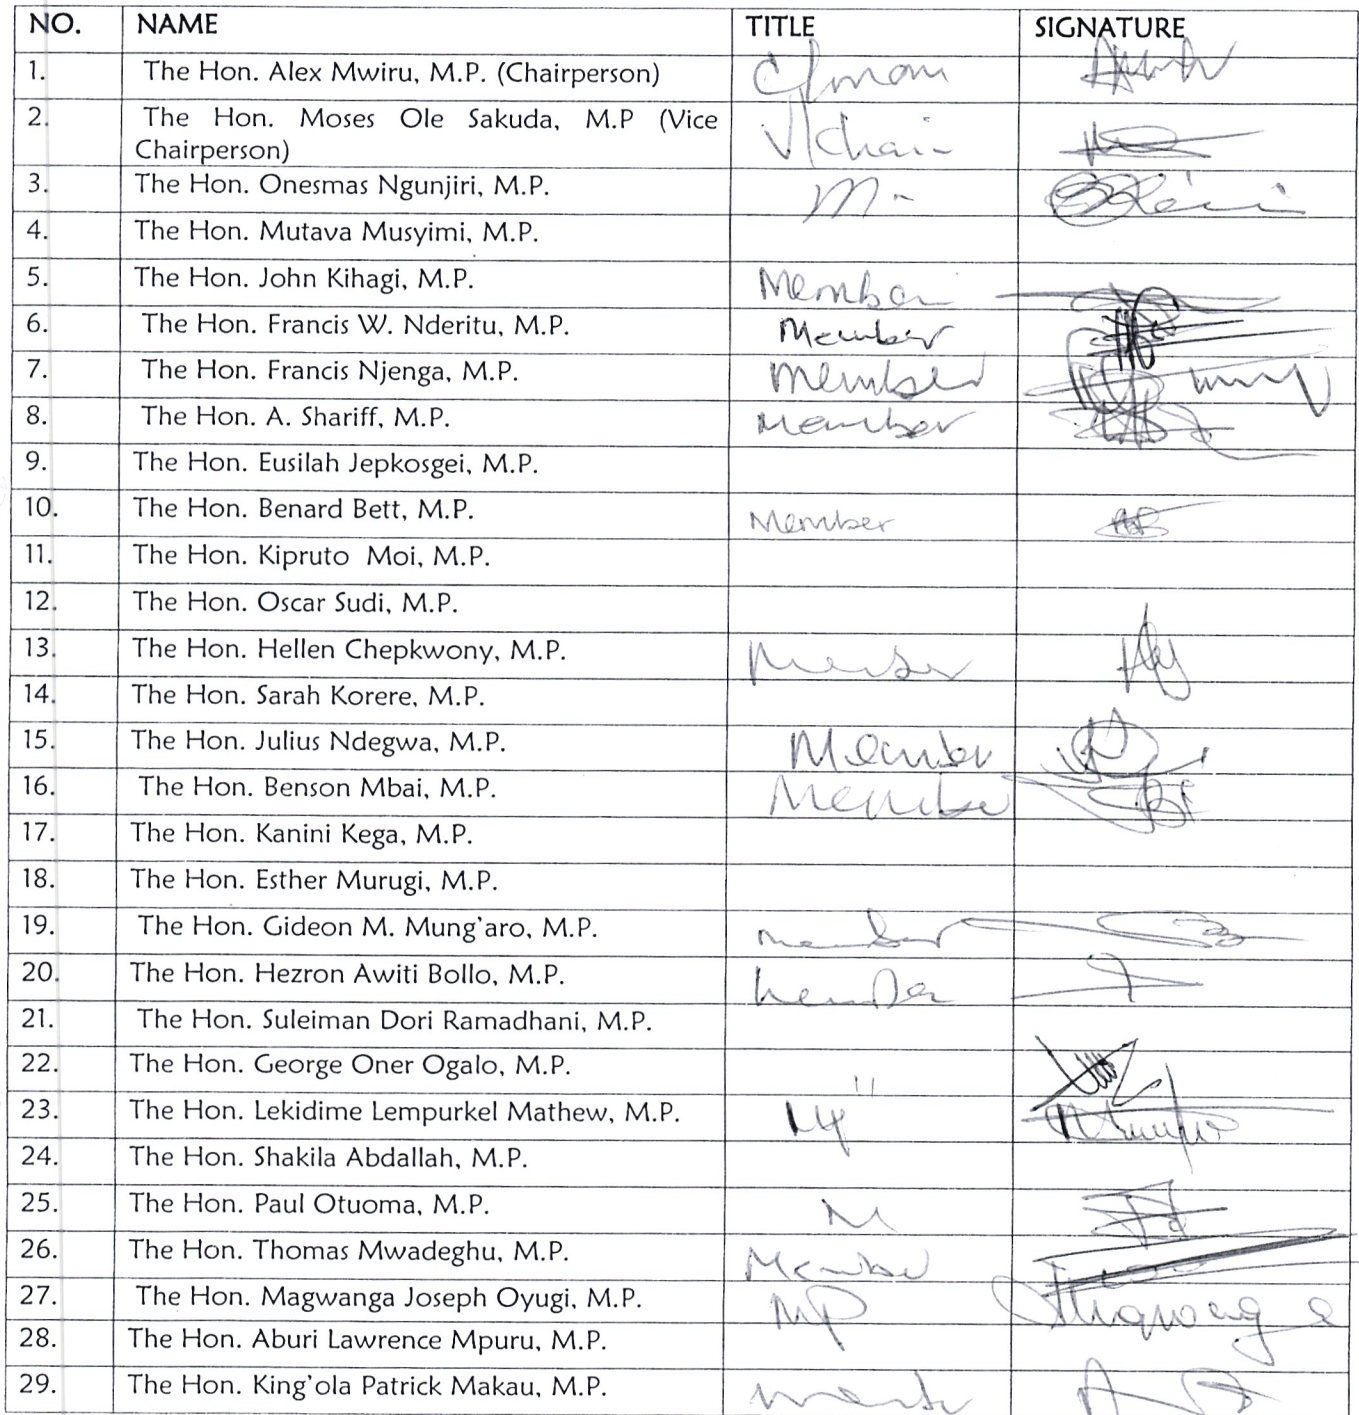 NO. NAME TITLE SIGNATURE
1. The Hon. Alex Mwiru, M.P. (Chairperson)
2. The Hon. Moses Ole Sakuda, M.P (Vice
Chairperson) V/Chair
3. The Hon. Onesmas Ngunjiri, M.P.
4. The Hon. Mutava Musyimi, M.P.
5. The Hon. John Kihagi, M.P. Member
6. The Hon. Francis W. Nderitu, M.P. Member
7. The Hon. Francis Njenga, M.P. Member
8. The Hon. A. Shariff, M.P. Member
9. The Hon. Eusilah Jepkosgei, M.P.
10. The Hon. Benard Bett, M.P. Member
11. The Hon. Kipruto Moi, M.P.
12. The Hon. Oscar Sudi, M.P.
13. The Hon. Hellen Chepkwony, M.P. Member
14. The Hon. Sarah Korere, M.P.
15. The Hon. Julius Ndegwa, M.P. Member
16. The Hon. Benson Mbai, M.P. Member
17. The Hon. Kanini Kega, M.P.
18. The Hon. Esther Murugi, M.P.
19. The Hon. Gideon M. Mung'aro, M.P. Member
20. The Hon. Hezron Awiti Bollo, M.P. Member
21. The Hon. Suleiman Dori Ramadhani, M.P.
22. The Hon. George Oner Ogalo, M.P. "
23. The Hon. Lekidime Lempurkel Mathew, M.P.
24. The Hon. Shakila Abdallah, M.P.
25. The Hon. Paul Otuoma, M.P. M
26. The Hon. Thomas Mwadeghu, M.P. Member
27. The Hon. Magwanga Joseph Oyugi, M.P. MP
28. The Hon. Aburi Lawrence Mpuru, M.P.
29. The Hon. King'ola Patrick Makau, M.P. Member